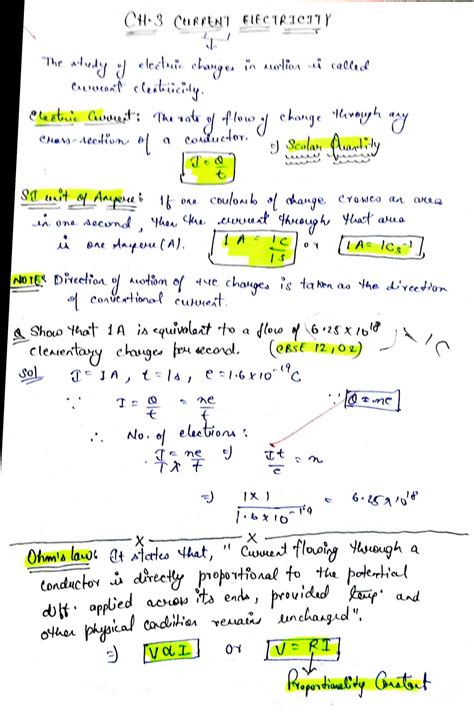 CH.3 CURRENT ELECTRICITY
The study of electric charges in motion is called
current electricity.
Electric Current: The rate of flow of charge through any
cross-section of a conductor. ⇒ Scalar Quantity
I = Q/t
SI unit of Ampere: If one coulomb of charge crosses an area
in one second, then the current through that area
is one Ampere (A). 1A = 1C/1s or 1A = 1Cs⁻¹
NOTE: Direction of motion of +ve charges is taken as the direction
of conventional current.
Q Show that 1A is equivalent to a flow of 6.25 × 10¹⁸
elementary charges per second. (CBSE 12, 02)
Sol I = 1A, t = 1s, e = 1.6 × 10⁻¹⁹ C
∵ I = Q/t = ne/t ∵ Q = ne
∴ No. of electrons:
I/1 × = ne/t ⇒ It/e = n
⇒ 1 × 1 / 1.6 × 10⁻¹⁹ = 6.25 × 10¹⁸
x x
Ohm's law: It states that, "Current flowing through a
conductor is directly proportional to the potential
diff. applied across its ends, provided temp. and
other physical condition remain unchanged".
⇒ V ∝ I or V = RI
Proportionality Constant